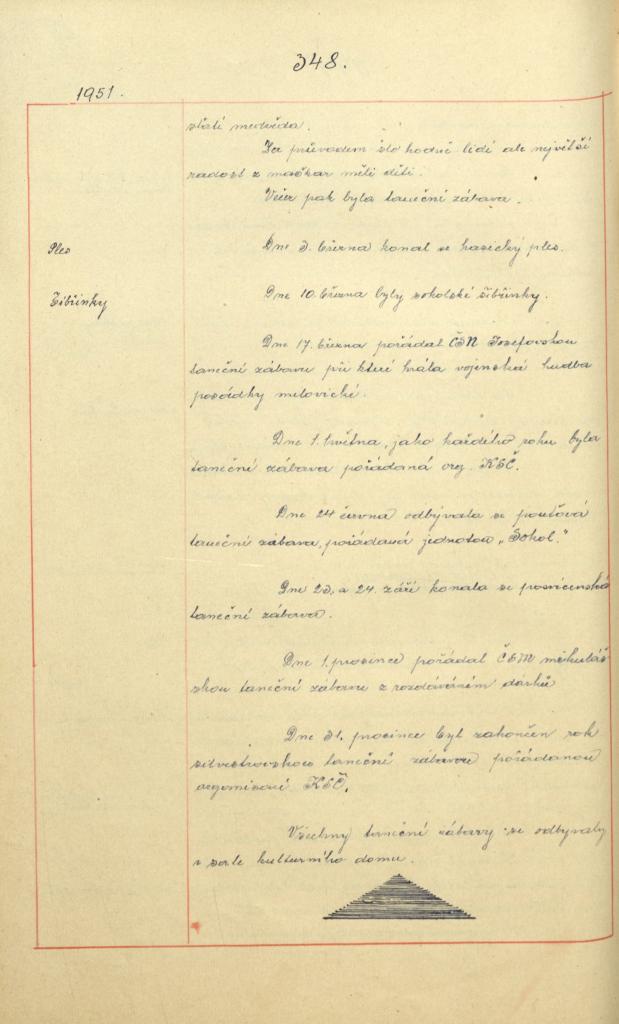 348.
1951.
střetí medvěda.
Za průvodem šlo hodně lidí ale největší
radost z maškar měli děti.
Večer pak byla taneční zábava.
Ples
Dne 3. března konal se hasičký ples.
Šibřinky
Dne 10. března byly sokolské šibřinky.
Dne 17. března pořádal ČSM Josefovskou
taneční zábavu při které hrála vojenská hudba
posádky milovické.
Dne 1. května, jako každého roku byla
taneční zábava pořádaná org. KSČ.
Dne 24 června odbývala se pouťová
taneční zábava, pořádaná jednotou „Sokol."
Dne 23. a 24. září konala se posvícenská
taneční zábava.
Dne 1. prosince pořádal ČSM mikuláš-
skou taneční zábavu z rozdáváním dárků
Dne 31. prosince byl zakončen rok
silvestrovskou taneční zábavou pořádanou
organisací KSČ.
Všechny taneční zábavy se odbývaly
v sale kulturního domu.